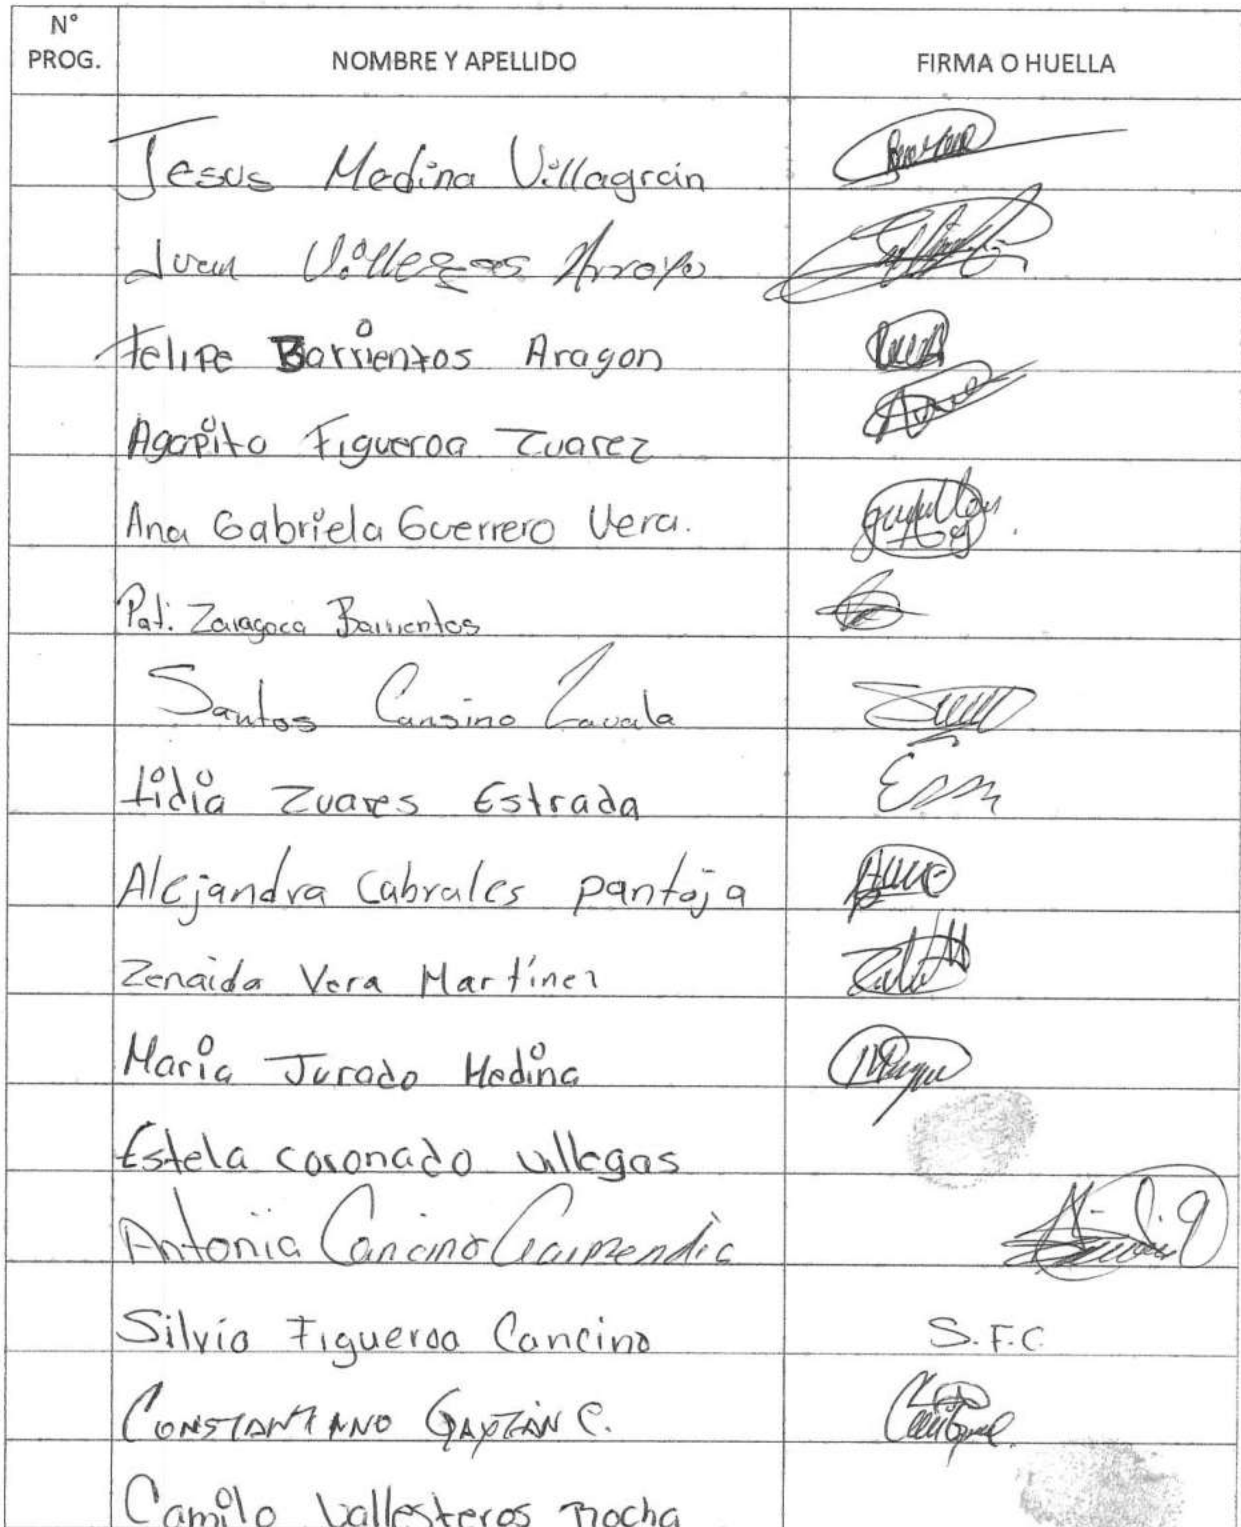 N°
PROG.
NOMBRE Y APELLIDO
FIRMA O HUELLA
Jesus Medina Villagrán
Juan Villegas Arroyo
Felipe Barrientos Aragon
Agapito Figueroa Zuarez
Ana Gabriela Guerrero Vera.
Pati Zaragoca Barrientos
Santos Cansino Zavala
Lidia Zuares Estrada
Alejandra Cabrales pantoja
Zenaida Vera Martínez
Maria Jurado Medina
Estela coronado Villegas
Antonia Cancino
Silvia Figueroa Cancino
S.F.C
CONSTANTINO GAYTÁN C.
Camilo Vallesteros Rocha